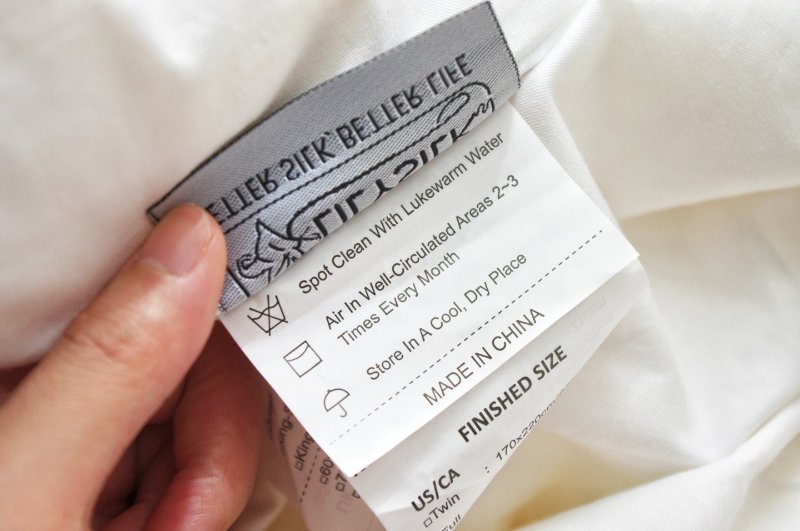 BETTER SILK, BETTER LIFE
LILYSILK
Spot Clean With Lukewarm Water
Air In Well-Circulated Areas 2~3
Times Every Month
Store In A Cool, Dry Place
MADE IN CHINA
FINISHED SIZE
US/CA
□Twin
: 170x220cm
□King